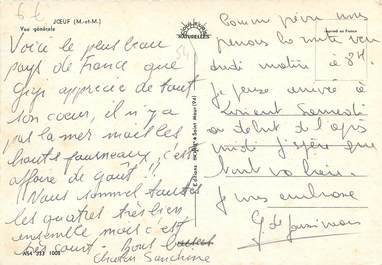 6 €
JŒUF (M.-et-M.)
Vue générale
Voici le plus beau
pays de France que
Gigi apprécie de tout
son cœur, il n'y a
pas la mer mais les
hauts fourneaux, c'est
affaire de goût !!
Nous sommes toutes
les quatres très bien
ensemble mais c'est
très court. Bons baisers
A54 253 1008
NATURELLES
Imprimé en France
Comme prévu nous
prenons la route ven
dredi matin à 8H.
Je pense arriver à
Lorient Samedi
au début de l'après
midi j'espère que
tout va bien.
Je vous embrasse